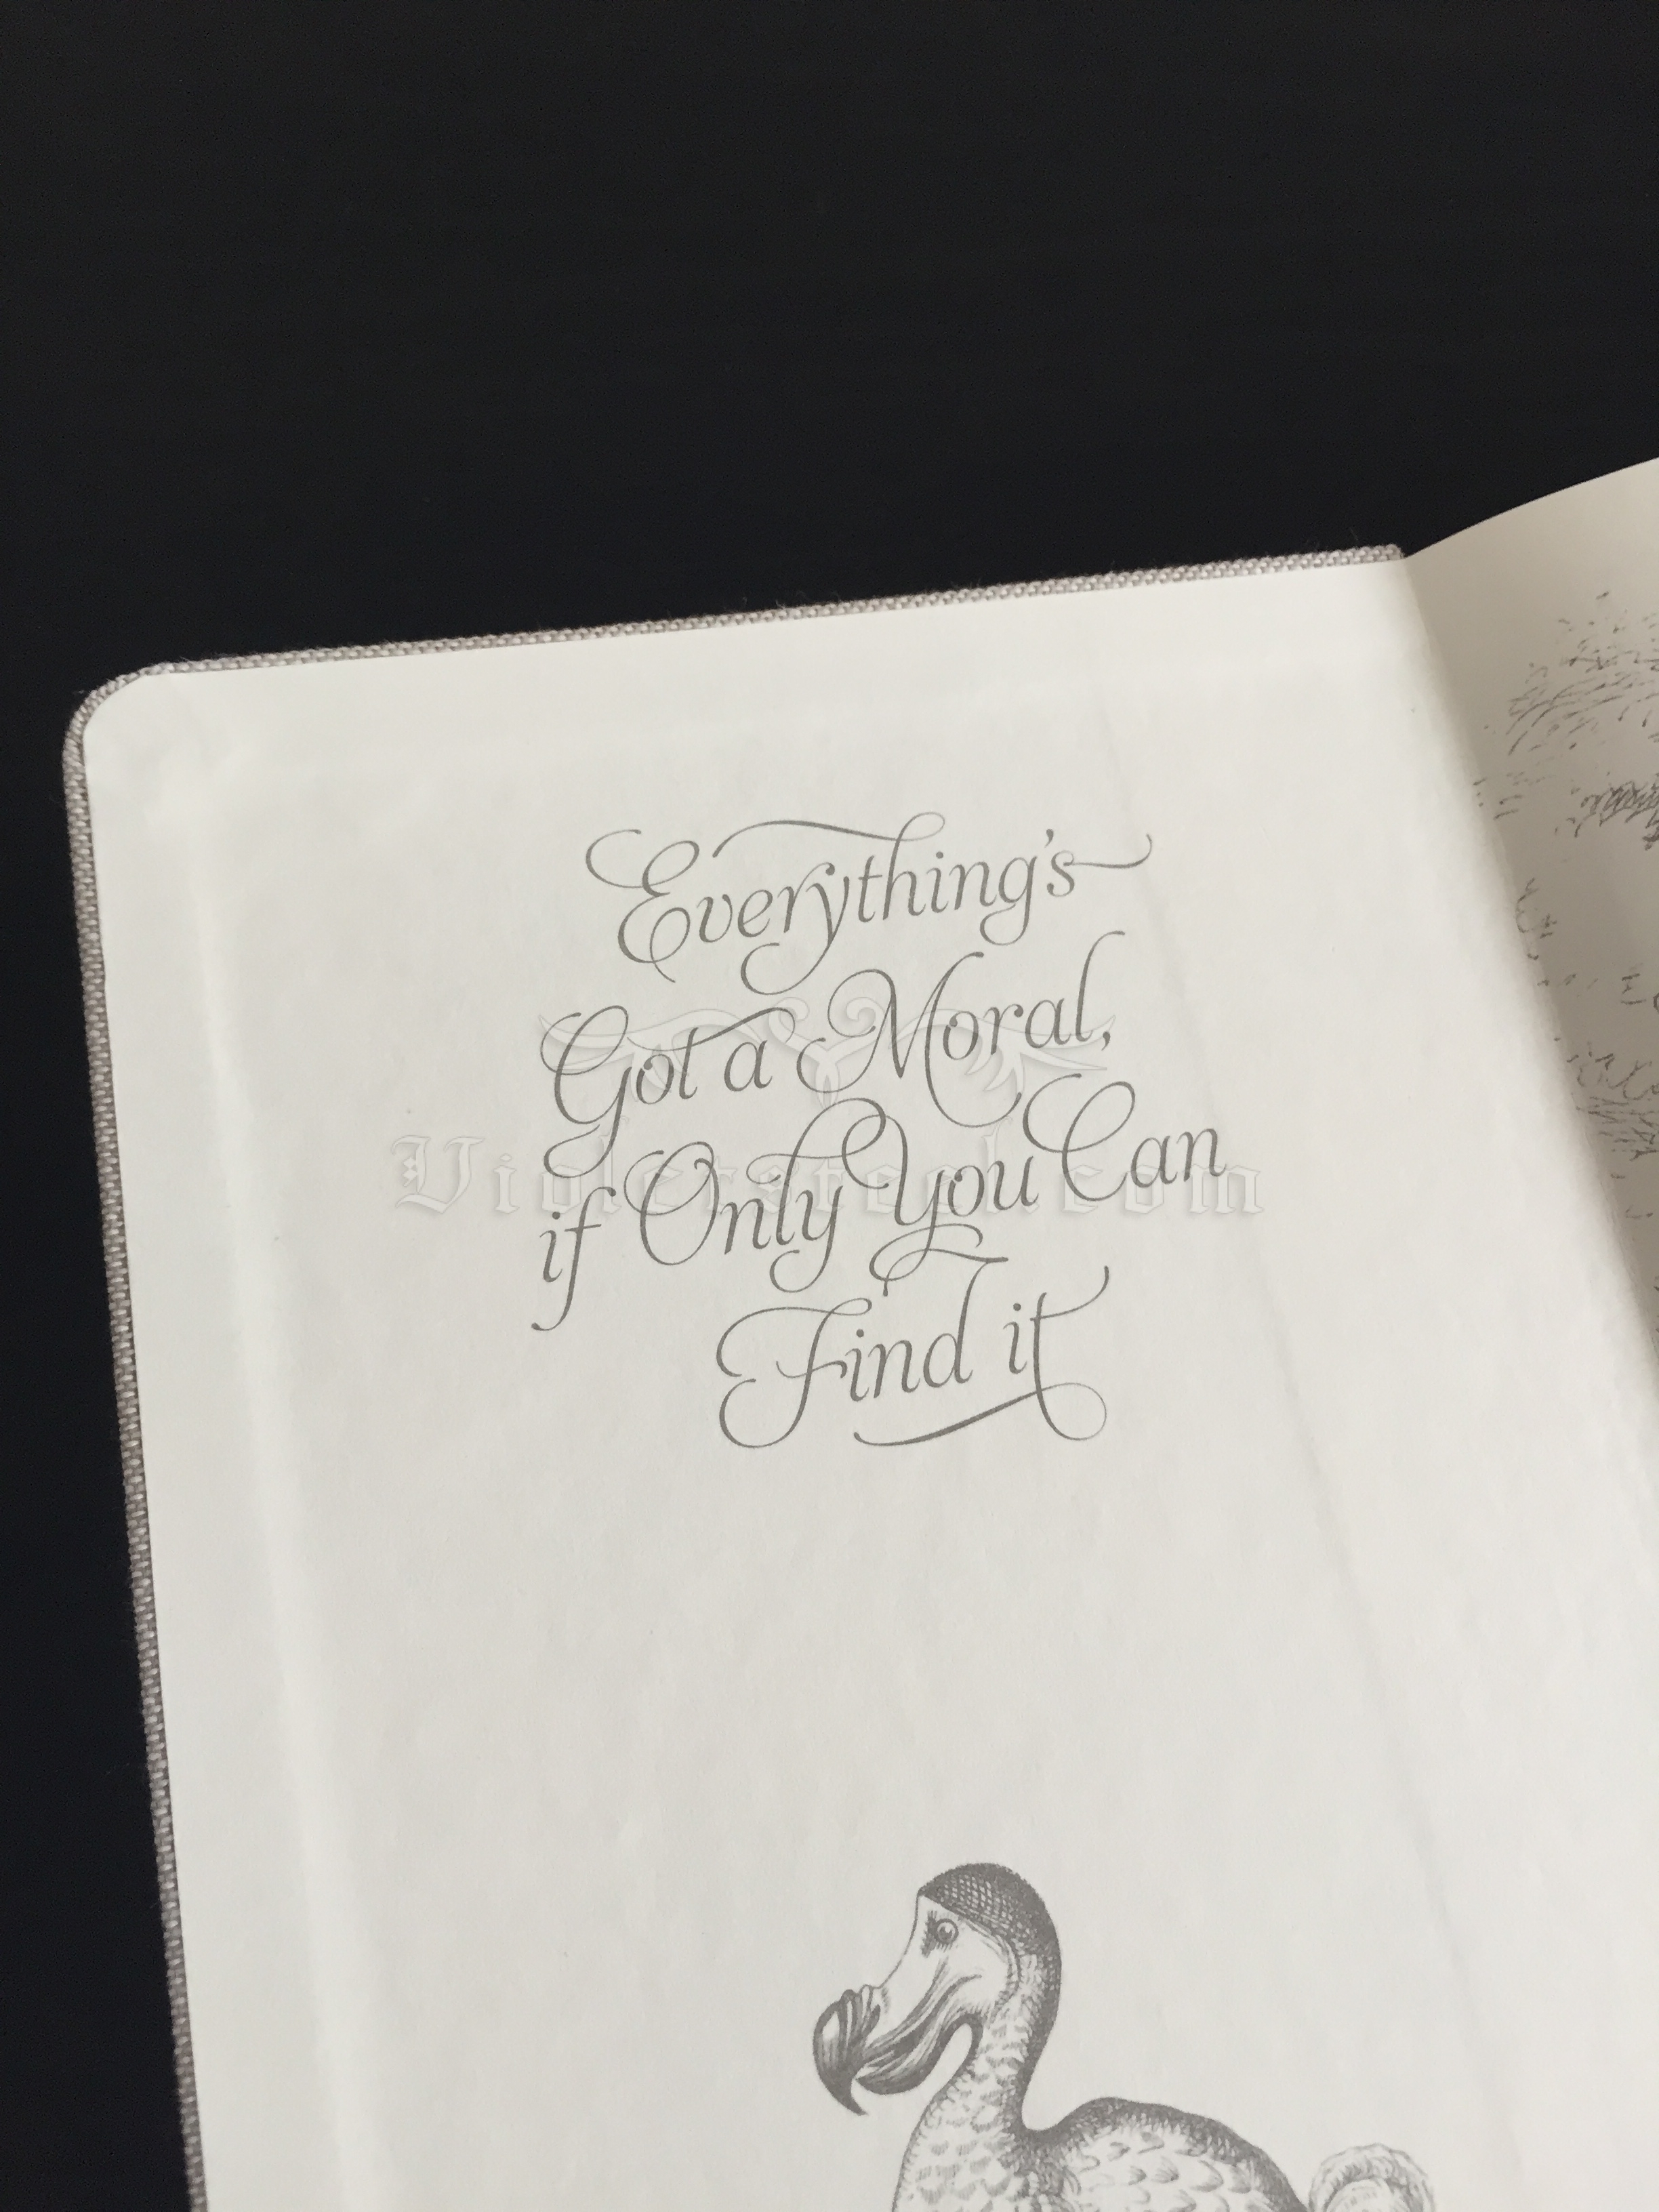 Everything's
Got a Moral,
if Only You Can
Find it
Violetstock.com